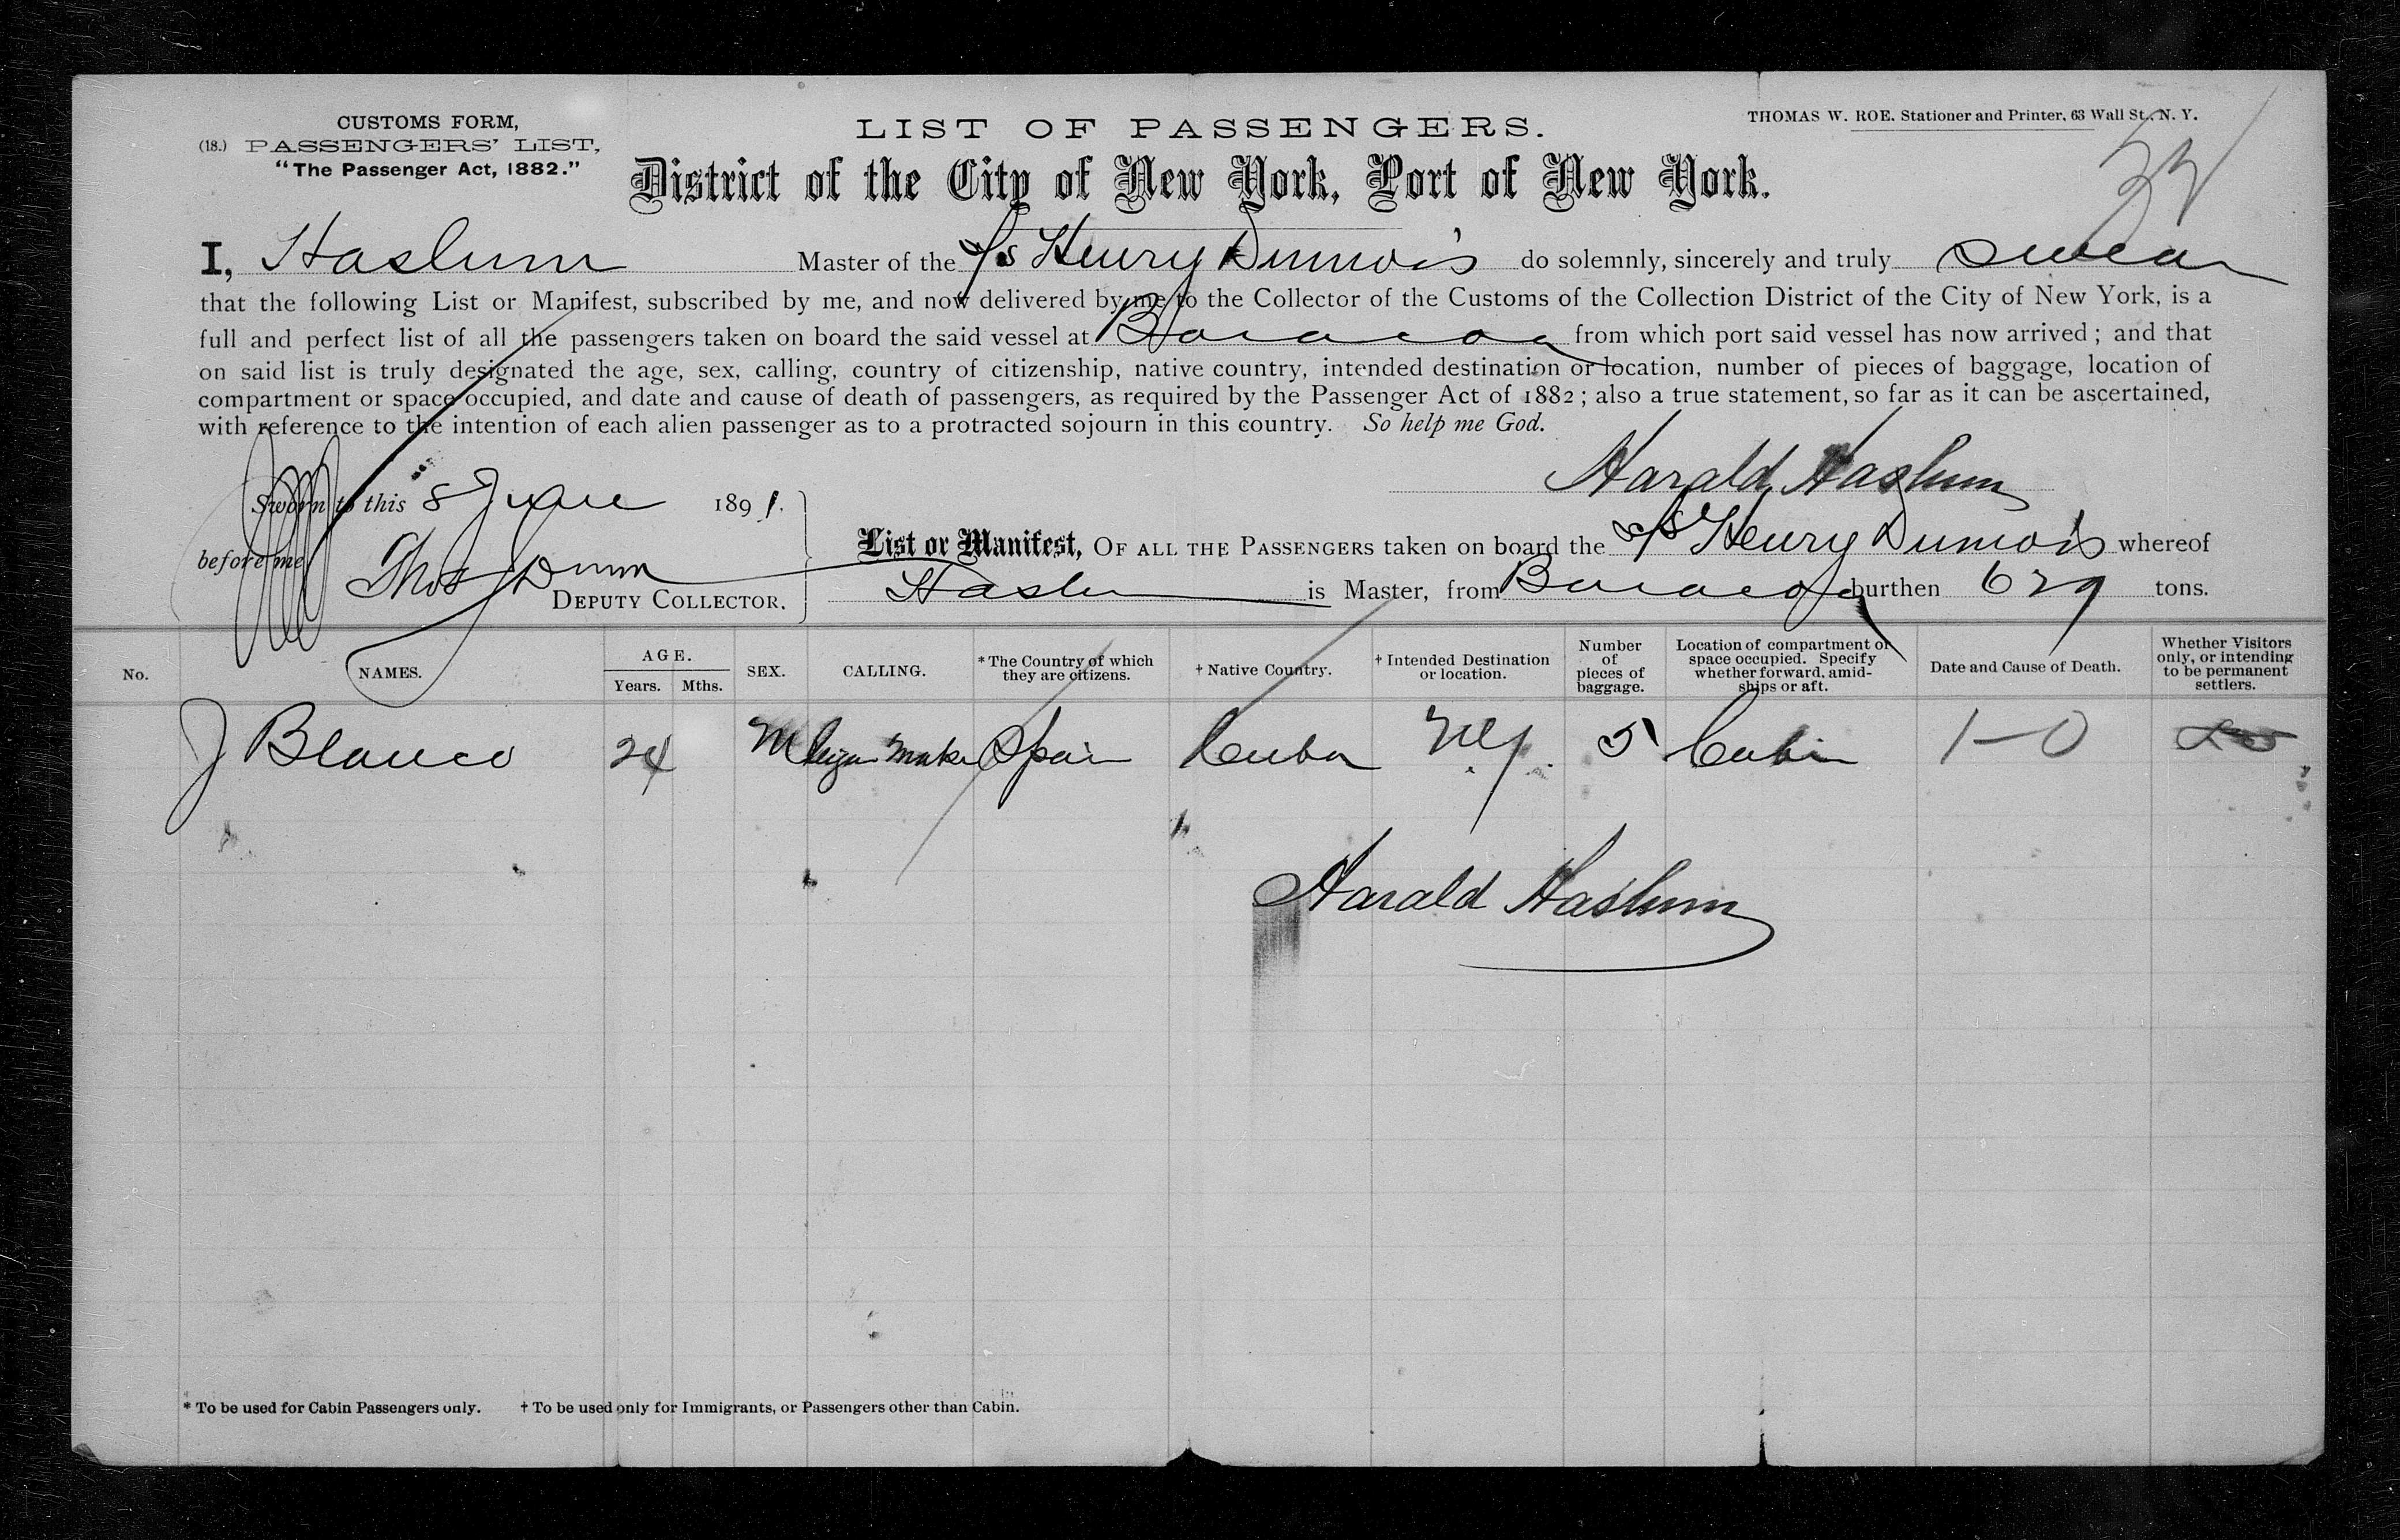 CUSTOMS FORM,
(18.) PASSENGERS' LIST,
"The Passenger Act, 1882."
LIST OF PASSENGERS.
THOMAS W. ROE. Stationer and Printer, 63 Wall St., N. Y.
District of the City of New York, Port of New York.
I, Haslum Master of the S/s Henry Dumois do solemnly, sincerely and truly swear
that the following List or Manifest, subscribed by me, and now delivered by me to the Collector of the Customs of the Collection District of the City of New York, is a
full and perfect list of all the passengers taken on board the said vessel at Baracoa from which port said vessel has now arrived; and that
on said list is truly designated the age, sex, calling, country of citizenship, native country, intended destination or location, number of pieces of baggage, location of
compartment or space occupied, and date and cause of death of passengers, as required by the Passenger Act of 1882; also a true statement, so far as it can be ascertained,
with reference to the intention of each alien passenger as to a protracted sojourn in this country. So help me God.
Harald Haslum
Sworn to this 8 June 1891.
before me
Thos Dunn
DEPUTY COLLECTOR.
List or Manifest, OF ALL THE PASSENGERS taken on board the S/s Henry Dumois whereof
Haslum is Master, from Baracoa burthen 629 tons.
No. NAMES. AGE. Years. Mths. SEX. CALLING. * The Country of which they are citizens. † Native Country. † Intended Destination or location. Number of pieces of baggage. Location of compartment or space occupied. Specify whether forward, amidships or aft. Date and Cause of Death. Whether Visitors only, or intending to be permanent settlers.
J Blanco 24 M Cigar Maker Spain Cuba N.Y. 5 Cabin 1-0
Harald Haslum
* To be used for Cabin Passengers only. † To be used only for Immigrants, or Passengers other than Cabin.